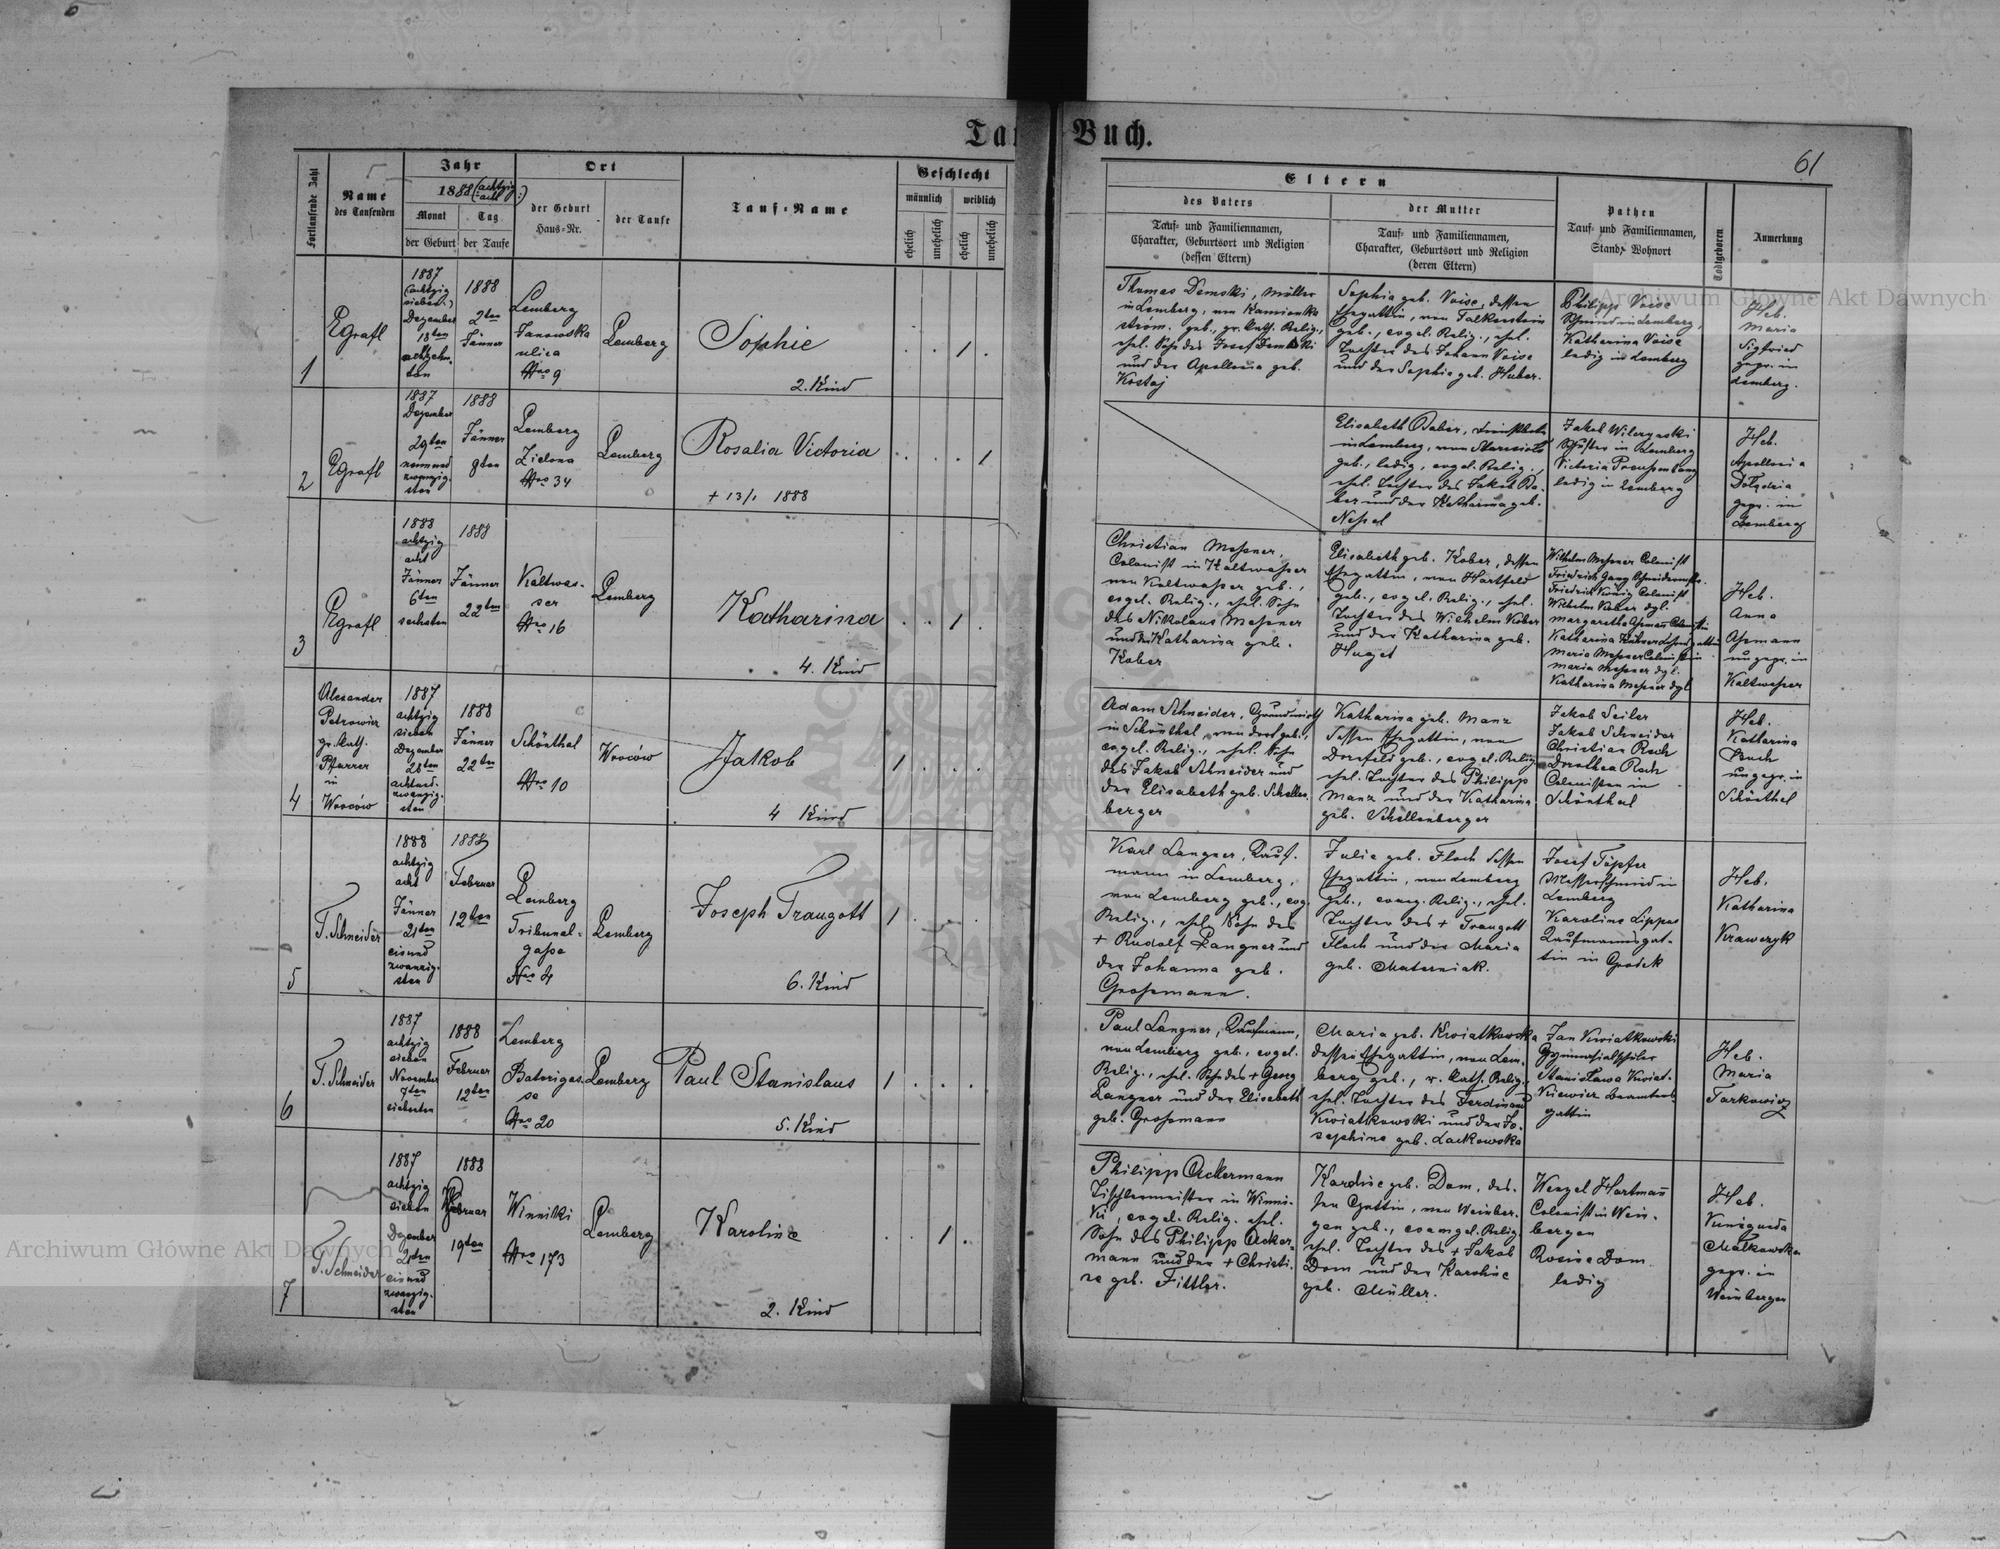 Tauf-Buch.
61
Fortlaufende Zahl
Name
des Taufenden
Jahr
1888 (achtzig
acht)
Monat
der Geburt
Tag
der Taufe
Ort
der Geburt
Haus-Nr.
der Taufe
Tauf-Name
Geschlecht
männlich
weiblich
ehelich
unehelich
ehelich
unehelich
Eltern
des Vaters
Tauf- und Familiennamen,
Charakter, Geburtsort und Religion
(dessen Eltern)
der Mutter
Tauf- und Familiennamen,
Charakter, Geburtsort und Religion
(deren Eltern)
Pathen
Tauf- und Familiennamen,
Stand, Wohnort
Todtgeboren
Anmerkung
1
Egrafl
1887
(achtzig
sieben)
Dezember
18ten
achtzehn-
ten
1888
2ten
Jänner
Lemberg
Janowska
ulica
Nro 9
Lemberg
Sophie
2. Kind
1
Thomas Demski, Müller
in Lemberg, von Kamionka
strom. geb., gr. kath. Relig.,
ehel. Sohn des Josef Demski
und der Apollonia geb.
Kostaj
Sophia geb. Voise, dessen
Ehegattin, von Falkenstein
geb., evgel. Relig., ehel.
Tochter des Johann Voise
und der Sophia geb. Huber.
Philipp Voise
Schmied in Lemberg,
Katharina Voise
ledig in Lemberg
Heb.
Maria
Sigfried
gepr. in
Lemberg.
2
Egrafl
1887
Dezember
29ten
neunund
zwanzig-
sten
1888
Jänner
9ten
Lemberg
Zielona
Nro 34
Lemberg
Rosalia Victoria
+ 13/1 1888
1
Elisabeth Baber,
in Lemberg, von
geb., ledig, evgel. Relig.,
ehel. Tochter des Jakob Ba-
ber und der Katharina geb.
Nessel
Jakob Wilczynski
Schuster in Lemberg
Victoria
ledig in Lemberg
Heb.
Apollonia
gepr. in
Lemberg
3
Egrafl
1888
achtzig
acht
Jänner
6ten
sechsten
1888
Jänner
22ten
Kaltwas-
ser
Nro 16
Lemberg
Katharina
4. Kind
1
Christian Messner,
Colonist in Kaltwasser
von Kaltwasser geb.,
evgel. Relig., ehel. Sohn
des Nikolaus Messner
und der Katharina geb.
Kober
Elisabeth geb. Kober, dessen
Ehegattin, von Hartfeld
geb., evgel. Relig., ehel.
Tochter des Wilhelm Kober
und der Katharina geb.
Huget
Wilhelm Messner Colonist
Friedrich Gang
Friedrich König Colonist
Wilhelm Kober dgl.
Margaretha Assmann
Katharina
Maria Messner Colonistin
Maria Messner dgl.
Katharina Messner dgl
Heb.
Anna
Assmann
ungepr. in
Kaltwasser
4
Alexander
Petrowicz
gr. kath.
Pfarrer
in
Wroców
1887
achtzig
sieben
Dezember
28ten
achtund-
zwanzig-
sten
1888
Jänner
22ten
Schönthal
Nro 10
Wroców
Jakob
4 Kind
1
Adam Schneider, Grundwirth
in Schönthal, von dort geb.,
evgel. Relig., ehel. Sohn
des Jakob Schneider und
der Elisabeth geb. Schellen-
berger
Katharina geb. Manz
dessen Ehegattin, von
Dornfeld geb., evgel. Relig.
ehel. Tochter des Philipp
Manz und der Katharina
geb. Schellenberger
Jakob Seiler
Jakob Schneider
Christian Roch
Dorothea Roch
Colonisten in
Schönthal
Heb.
Katharina
Bruch
ungepr. in
Schönthal
5
T. Schneider
1888
achtzig
acht
Jänner
21ten
einund
zwanzig-
sten
1888
Februar
12ten
Lemberg
Tribunal-
gasse
Nro 4
Lemberg
Joseph Traugott
6. Kind
1
Karl Langner, Kauf-
mann in Lemberg,
von Lemberg geb., evg.
Relig., ehel. Sohn des
+ Rudolf Langner und
der Johanna geb.
Grossmann.
Julie geb. Floch dessen
Ehegattin, von Lemberg
geb., evang. Relig., ehel.
Tochter des + Traugott
Floch und der Maria
geb. Materniak.
Josef Töpfer
Messerschmied in
Lemberg
Karoline Lippas
Kaufmannsgat-
tin in Grodek
Heb.
Katharina
Krawczyk
6
T. Schneider
1887
achtzig
sieben
November
7ten
siebenten
1888
Februar
12ten
Lemberg
Batorigas-
se
Nro 20
Lemberg
Paul Stanislaus
5. Kind
1
Paul Langner, Kaufmann,
von Lemberg geb., evgel.
Relig., ehel. Sohn des + Georg
Langner und der Elisabeth
geb. Grossmann
Maria geb. Kwiatkowska
dessen Ehegattin, von Lem-
berg geb., r. kath. Relig.,
ehel. Tochter des Ferdinand
Kwiatkowski und der Jo-
sephine geb. Laskowska
Jan Kwiatkowski
Gymnasialschüler
Stanisława Kwiat-
kiewicz Beamtens-
gattin
Heb.
Maria
Tarkowicz
7
T. Schneider
1887
achtzig
sieben
Dezember
21ten
einund
zwanzig-
sten
1888
Februar
19ten
Winniki
Nro 173
Lemberg
Karoline
2. Kind
1
Philipp Ackermann
Tischlermeister in Winni-
ki, evgel. Relig. ehel.
Sohn des Philipp Acker-
mann und der + Christi-
ne geb. Fittler.
Karoline geb. Dom, des-
sen Gattin, von Weinber-
gen geb., evangel. Relig.
ehel. Tochter des + Jakob
Dom und der Karoline
geb. Müller.
Wenzel Hartmann
Colonist in Wein-
bergen
Rosina Dom
ledig
Heb.
Kunigunda
Małkowska
gepr. in
Weinbergen
Archiwum Główne Akt Dawnych
Archiwum Główne Akt Dawnych